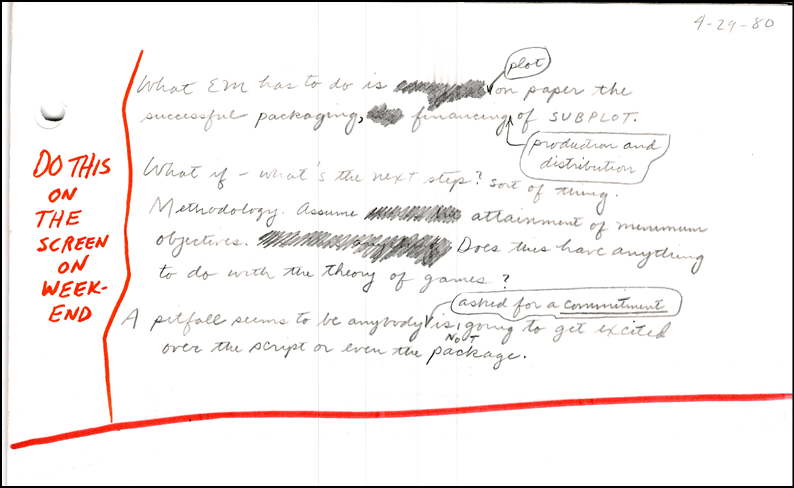 4-29-80
What EM has to do is plot on paper the
successful packaging, financing production and distribution of SUBPLOT.
What if - what's the next step? sort of thing.
Methodology. Assume attainment of minimum
objectives. Does this have anything
to do with the theory of games?
A pitfall seems to be anybody asked for a commitment is NOT going to get excited
over the script or even the package.
DO THIS
ON
THE
SCREEN
ON
WEEK-
END